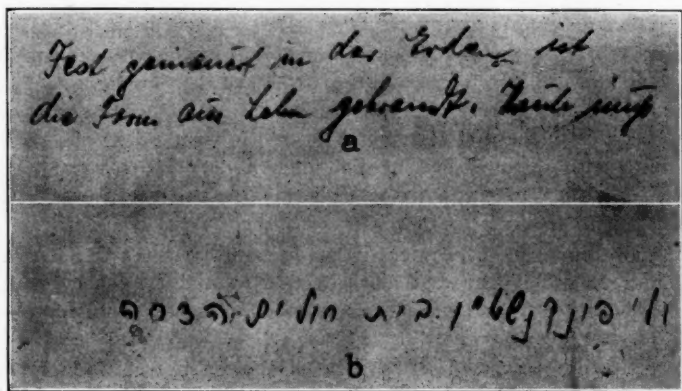 Fest gemauert in der Erden ist
die Form aus Lehm gebrandt. Heute muß
a
ולי פינקנשטין בית חולים הדסה
b